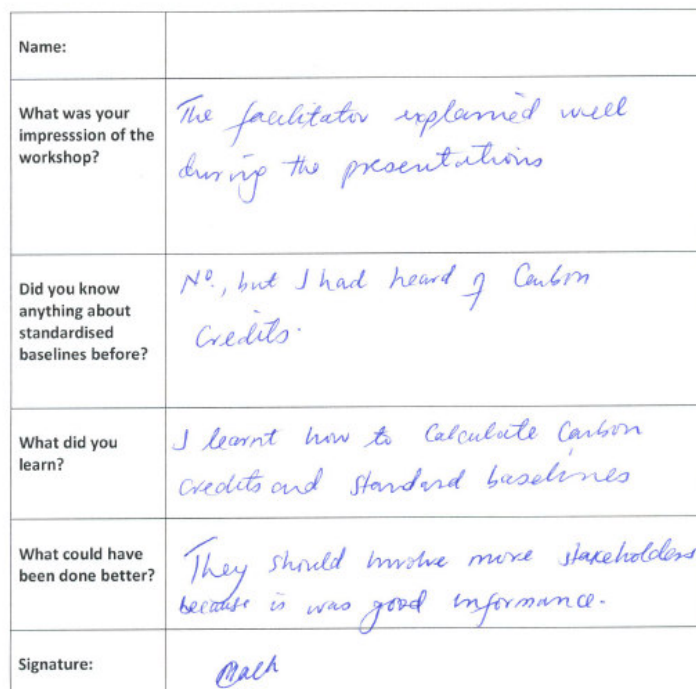 Name:
What was your
impresssion of the
workshop?
The facilitator explained well
during the presentations
Did you know
anything about
standardised
baselines before?
No., but I had heard of Carbon
Credits.
What did you
learn?
I learnt how to Calculate Carbon
credits and standard baselines
What could have
been done better?
They should involve more stakeholders
because is was good informance.
Signature: